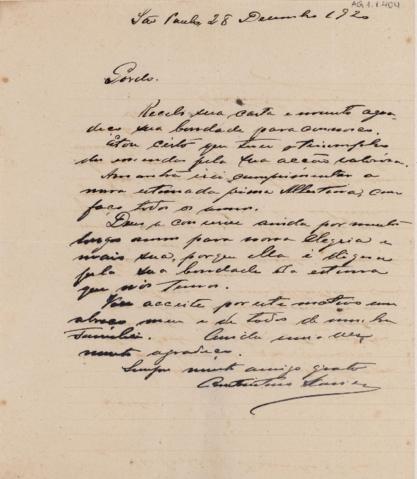 AG.1.1.404
São Paulo, 28 Dezembro 1920
Gordo.
Recebi sua carta e muito agra-
deço sua bondade para comnosco.
Estou certo que
pela sua acção valorosa.
Amanhã irei cumprimentar a
nossa estimada prima Albertina, como
faço todos os annos.
Deus a conserve ainda por muito
longos annos para nossa alegria e
mais sua, porque ella é digna
pela sua bondade da estima
que nós temos.
accceite por este motivo um
abraço meu e de todos de minha
Familia. Ainda uma vez
muito agradeço.
Sempre muito amigo grato